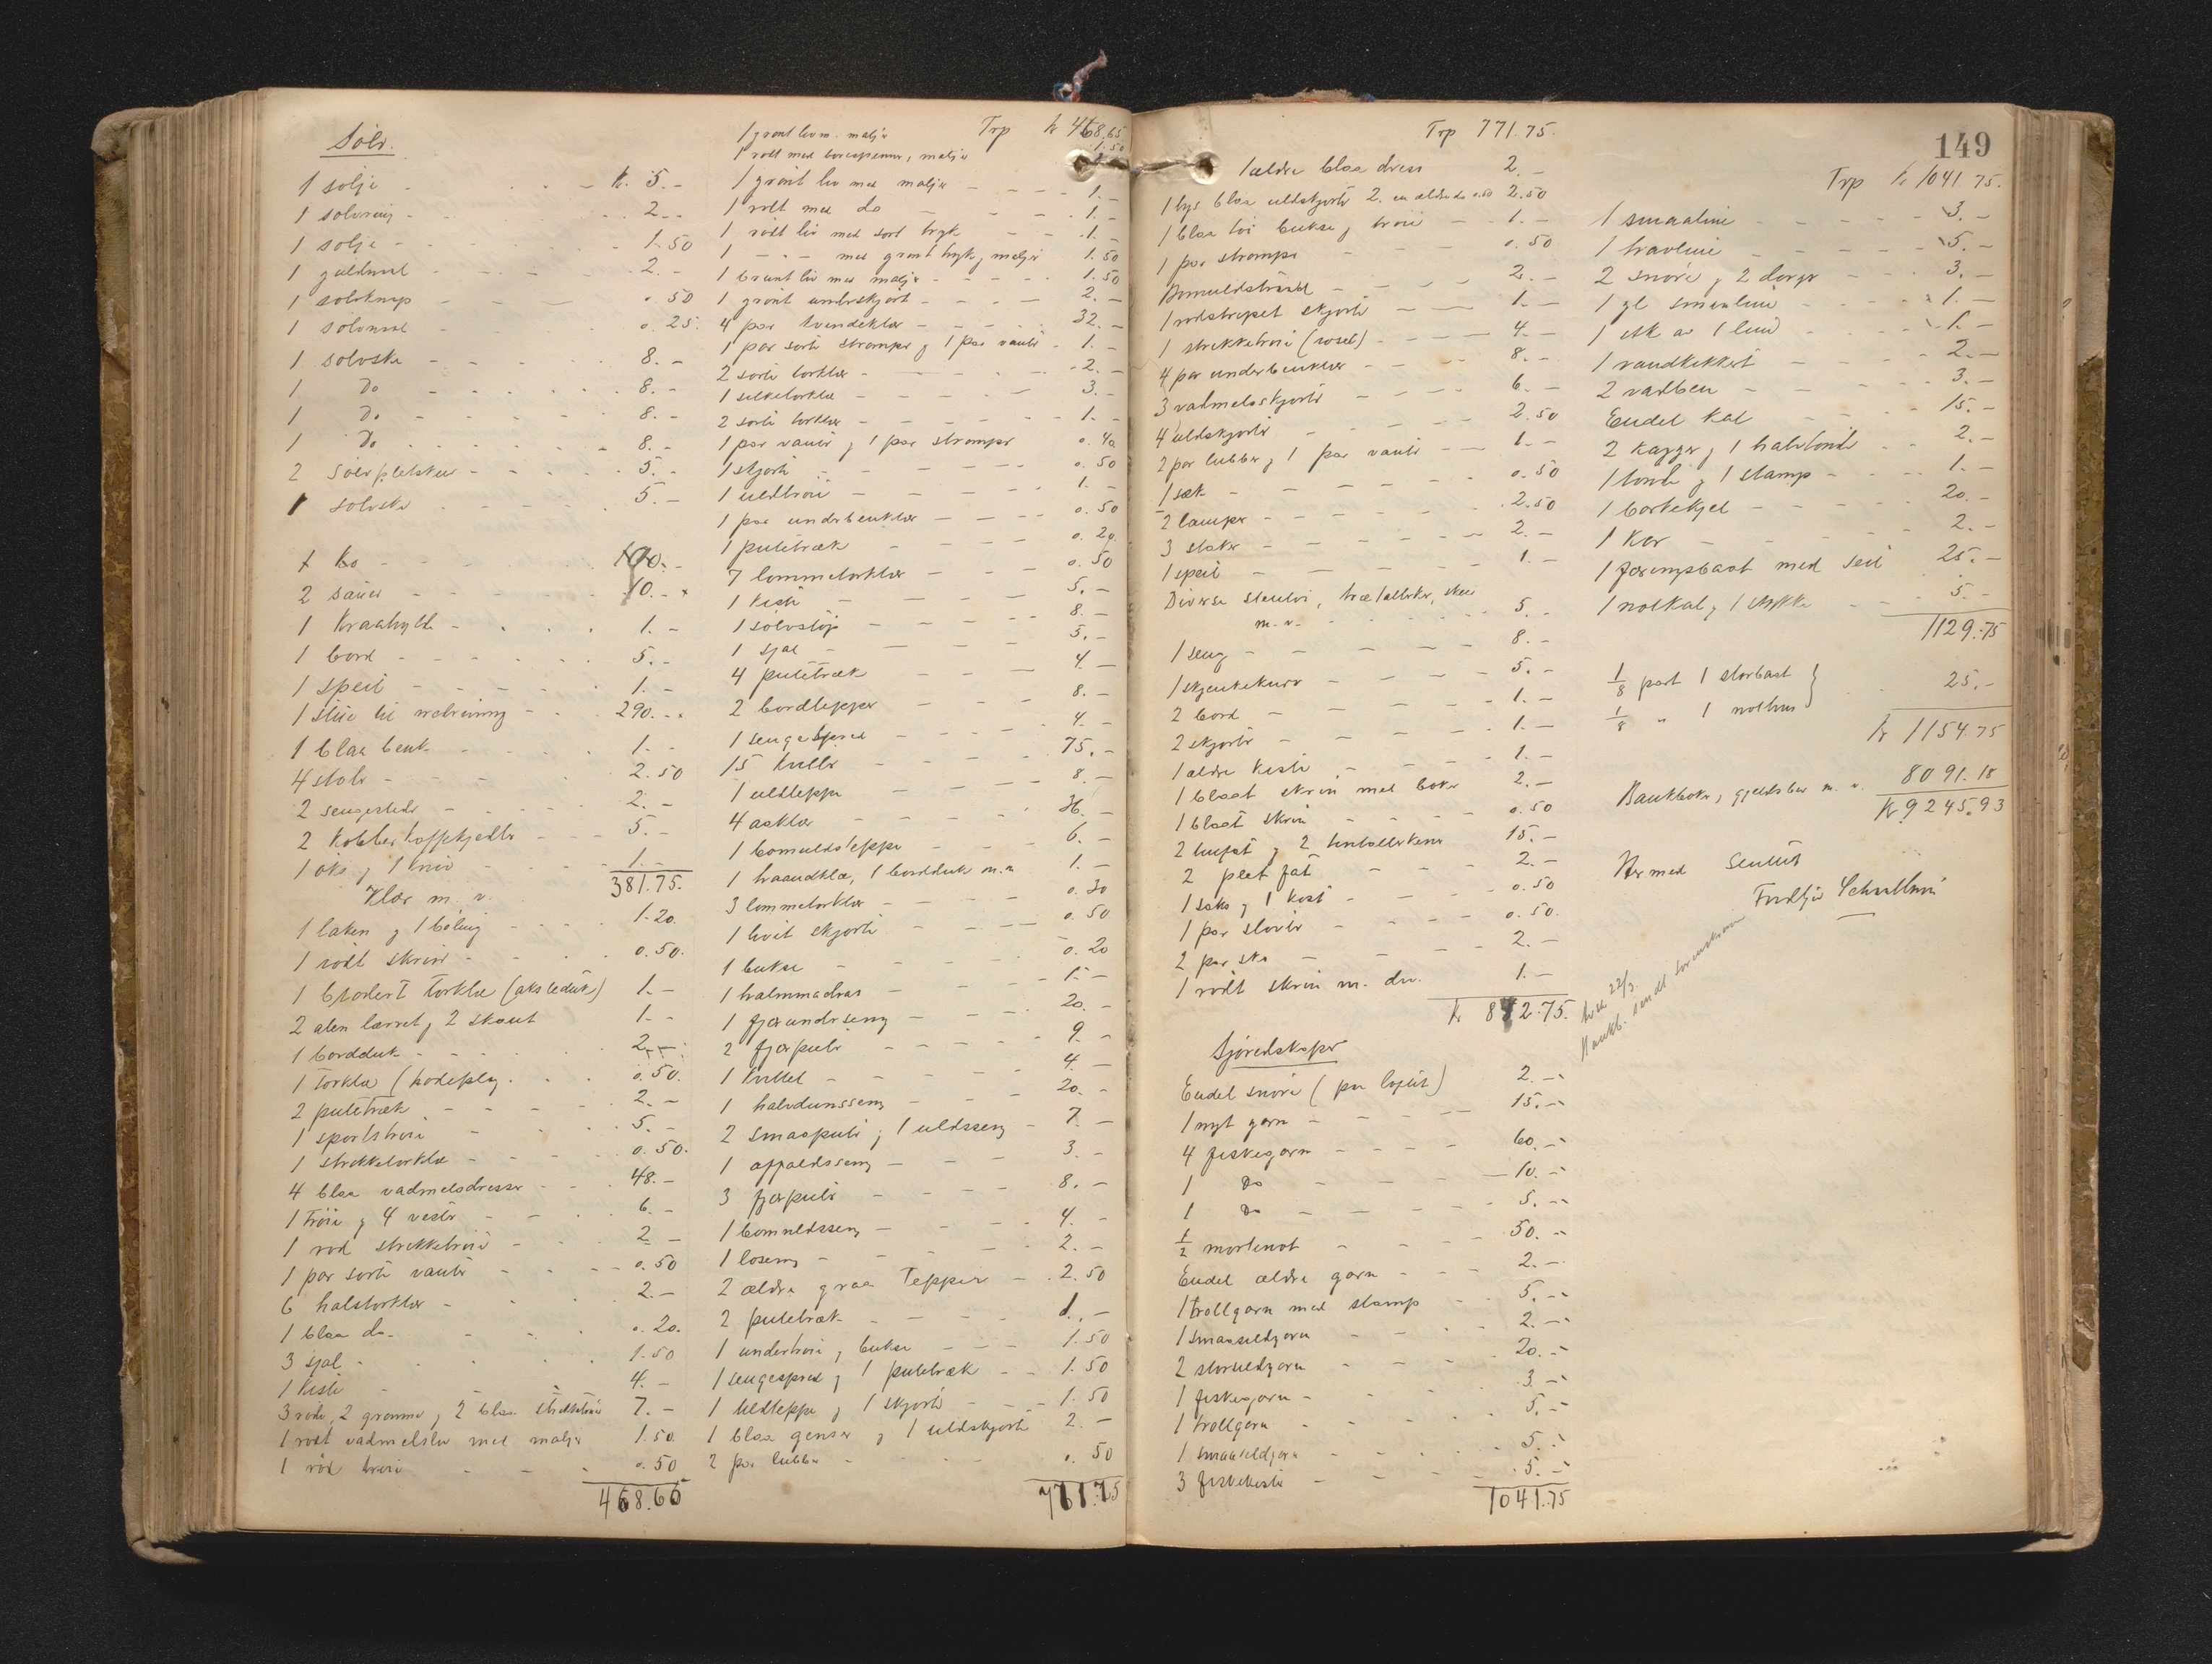 Sølv.
1 sølje - kr. 5.-
1 sølvring - 2.-
1 sølje - 1.50
1 guldnaal - 2.-
1 sølvknap - 0.50
1 sølvnaal - 0.25.
1 sølvske - 8.-
1 Do - 8.-
1 Do - 8.-
1 Do - 8.-
2 Sølvpletskeer - 5.-
1 sølvske - 5.-
1 ko - 100.-
2 sauer - 10.-
1 Kraahylde - 1.-
1 bord - 5.-
1 speil - 1.-
1 stue til nedrivning - 290.-
1 blaa benk - 1.-
4 stole - 2.50
2 sengesteder - 2.-
2 Kobber Kaffekjedler - 5.-
1 øks og 1 kniv - 1.-
381.75.
Klær m. v.
1 laken og 1 bøling - 1.20.
1 rødt skrin - 0.50.
1 brodert tørklæ (akseleduk) 1.-
2 alen lærret, 2 skaut 1.-
1 bordduk - 2.-
1 Tørklæ (hodeplag. 0.50.
2 putetræk - 2.-
1 sportstrøie - 5.-
1 strikketørklæ - 0.50.
4 blaa vadmelsdresser - 48.-
1 trøie og 4 vester - 6.-
1 rød strikketrøie - 2.-
1 par sorte vanter - 0.50
6 halstørklær - 2.-
1 blaa do. 0.20.
3 sjal - 1.50
1 Kiste - 4.-
3 røde, 2 grønne og 2 blaa strikketrøie 7.-
1 rødt vadmelsliv med maljer 1.50
1 rød trøie - 0.50
468.65
1 grønt liv m. maljer Trp kr 468.65
1 rødt med maljer 1.50
1 grønt liv med maljer - 1.-
1 rødt med do - 1.-
1 rødt liv med sort tryk - 1.-
1 -"- med grønt tryk og maljer 1.50
1 brunt liv med maljer - 1.50
1 grønt underskjørt - 2.-
4 par kvindeklær - 32.-
1 par sorte strømper og 1 par vanter - 1.-
2 sorte tørklær - 2.-
1 silketørklæ - 3.-
2 sorte tørklær - 1.-
1 par vanter og 1 par strømper 0.40
1 skjorte - 0.50
1 uldtrøie - 1.-
1 par underbenklær - 0.50
1 putetræk - 0.20
7 lommetørklær - 0.50
1 Kiste - 5.-
1 sølvsløif - 8.-
1 sjal - 5.-
4 putetræk - 4.-
2 bordtepper - 8.-
1 sengespred - 4.-
15 kviller - 75.-
1 uldteppe - 8.-
4 aaklær - 36.-
1 bomuldsteppe - 6.-
1 haandklæ, 1 bordduk m.m 1.-
3 lommetørklær - 0.30
1 hvit skjorte - 0.50
1 bukse - 0.20
1 halmmadras - 1.-
1 fjærunderseng - 20.-
2 fjærputer - 9.-
1 kvittel - 4.-
1 halvdunsseng - 20.-
2 smaaputer, 1 uldsseng - 7.-
1 affaldsseng - 3.-
3 fjærputer - 8.-
1 bomuldsseng - 4.-
1 loseng - 2.-
2 ældre graa Tepper - 2.50
2 putetræk - 1.-
1 undertrøie og bukse - 1.50
1 sengespred og 1 putetræk - 1.50
1 uldteppe og 1 skjorte - 1.50
1 blaa genser og 1 uldskjorte 2.-
2 par lubber - 0.50
771.75
Trp 771.75.
1 ældre blaa dress 2.-
1 lys blaa uldskjorte 2. en ældre do 0.50 2.50
1 blaa tøi bukse og trøie - 1.-
1 par strømper - 0.50
Bomuldstraad - 2.-
1 rødstripet skjorte - 1.-
1 strikketrøie (roset) - 4.-
4 par underbenklær - 8.-
3 vadmelsskjorter - 6.-
4 uldskjorter - 2.50
2 par lubber og 1 par vanter - 1.-
1 sæk - 0.50
2 lamper - 2.50
3 staker - 2.-
1 speil - 1.-
Diverse stentøi, trætallerker, skeer
m. v. - 5.-
1 seng - 8.-
1 skjenkekurv - 5.-
2 bord - 1.-
2 skjorter - 1.-
1 ældre Kiste - 1.-
1 blaat skrin med bøker 2.-
1 blaat skrin - 0.50
2 tinfat og 2 tintallerkener 15.-
2 plet fat - 2.-
1 saks og 1 kost - 0.50
1 par støvler - 0.50.
2 par sko - 2.-
1 rødt skrin m. div. 1.-
kr 842.75.
Sjøredskaper
Endel snøre (paa loftet) 2.-
1 nyt garn - 15.-
4 fiskegarn - 60.-
1 Do - 10.-
1 Do - 5.-
1/2 mortenot - 50.-
Endel ældre garn - 2.-
1 trollgarn med stamp - 5.-
1 smaasildgarn - 2.-
2 storsildgarn - 20.-
1 fiskegarn - 3.-
1 trollgarn - 5.-
1 smaasildgarn - 5.-
3 fiskekister - 5.-
1041.75
149
Trp kr 1041.75.
1 smaaline - 3.-
1 haavline - 5.-
2 snøre og 2 dorger - 3.-
1 gl. smaaline - 1.-
1 stk av 1 line - 1.-
1 vandkikkert - 2.-
2 vadben - 3.-
Endel Kal - 15.-
2 Kagger og 1 halvtønde - 2.-
1 tønde og 1 stamp - 1.-
1 barkekjel - 20.-
1 Kar - 2.-
1 færingsbaat med seil 25.-
1 notkal, 1 stykke - 5.-
1129.75
1/8 part 1 storbaat }
1/8 " 1 nothus } 25.-
kr 1154.75
Bankbøker, gjeldsbev m. v. 8091.18
Kr 9245.93
Hermed sluttet
Fredtjv
22/3.
Bankb. sendt sorenskriveren